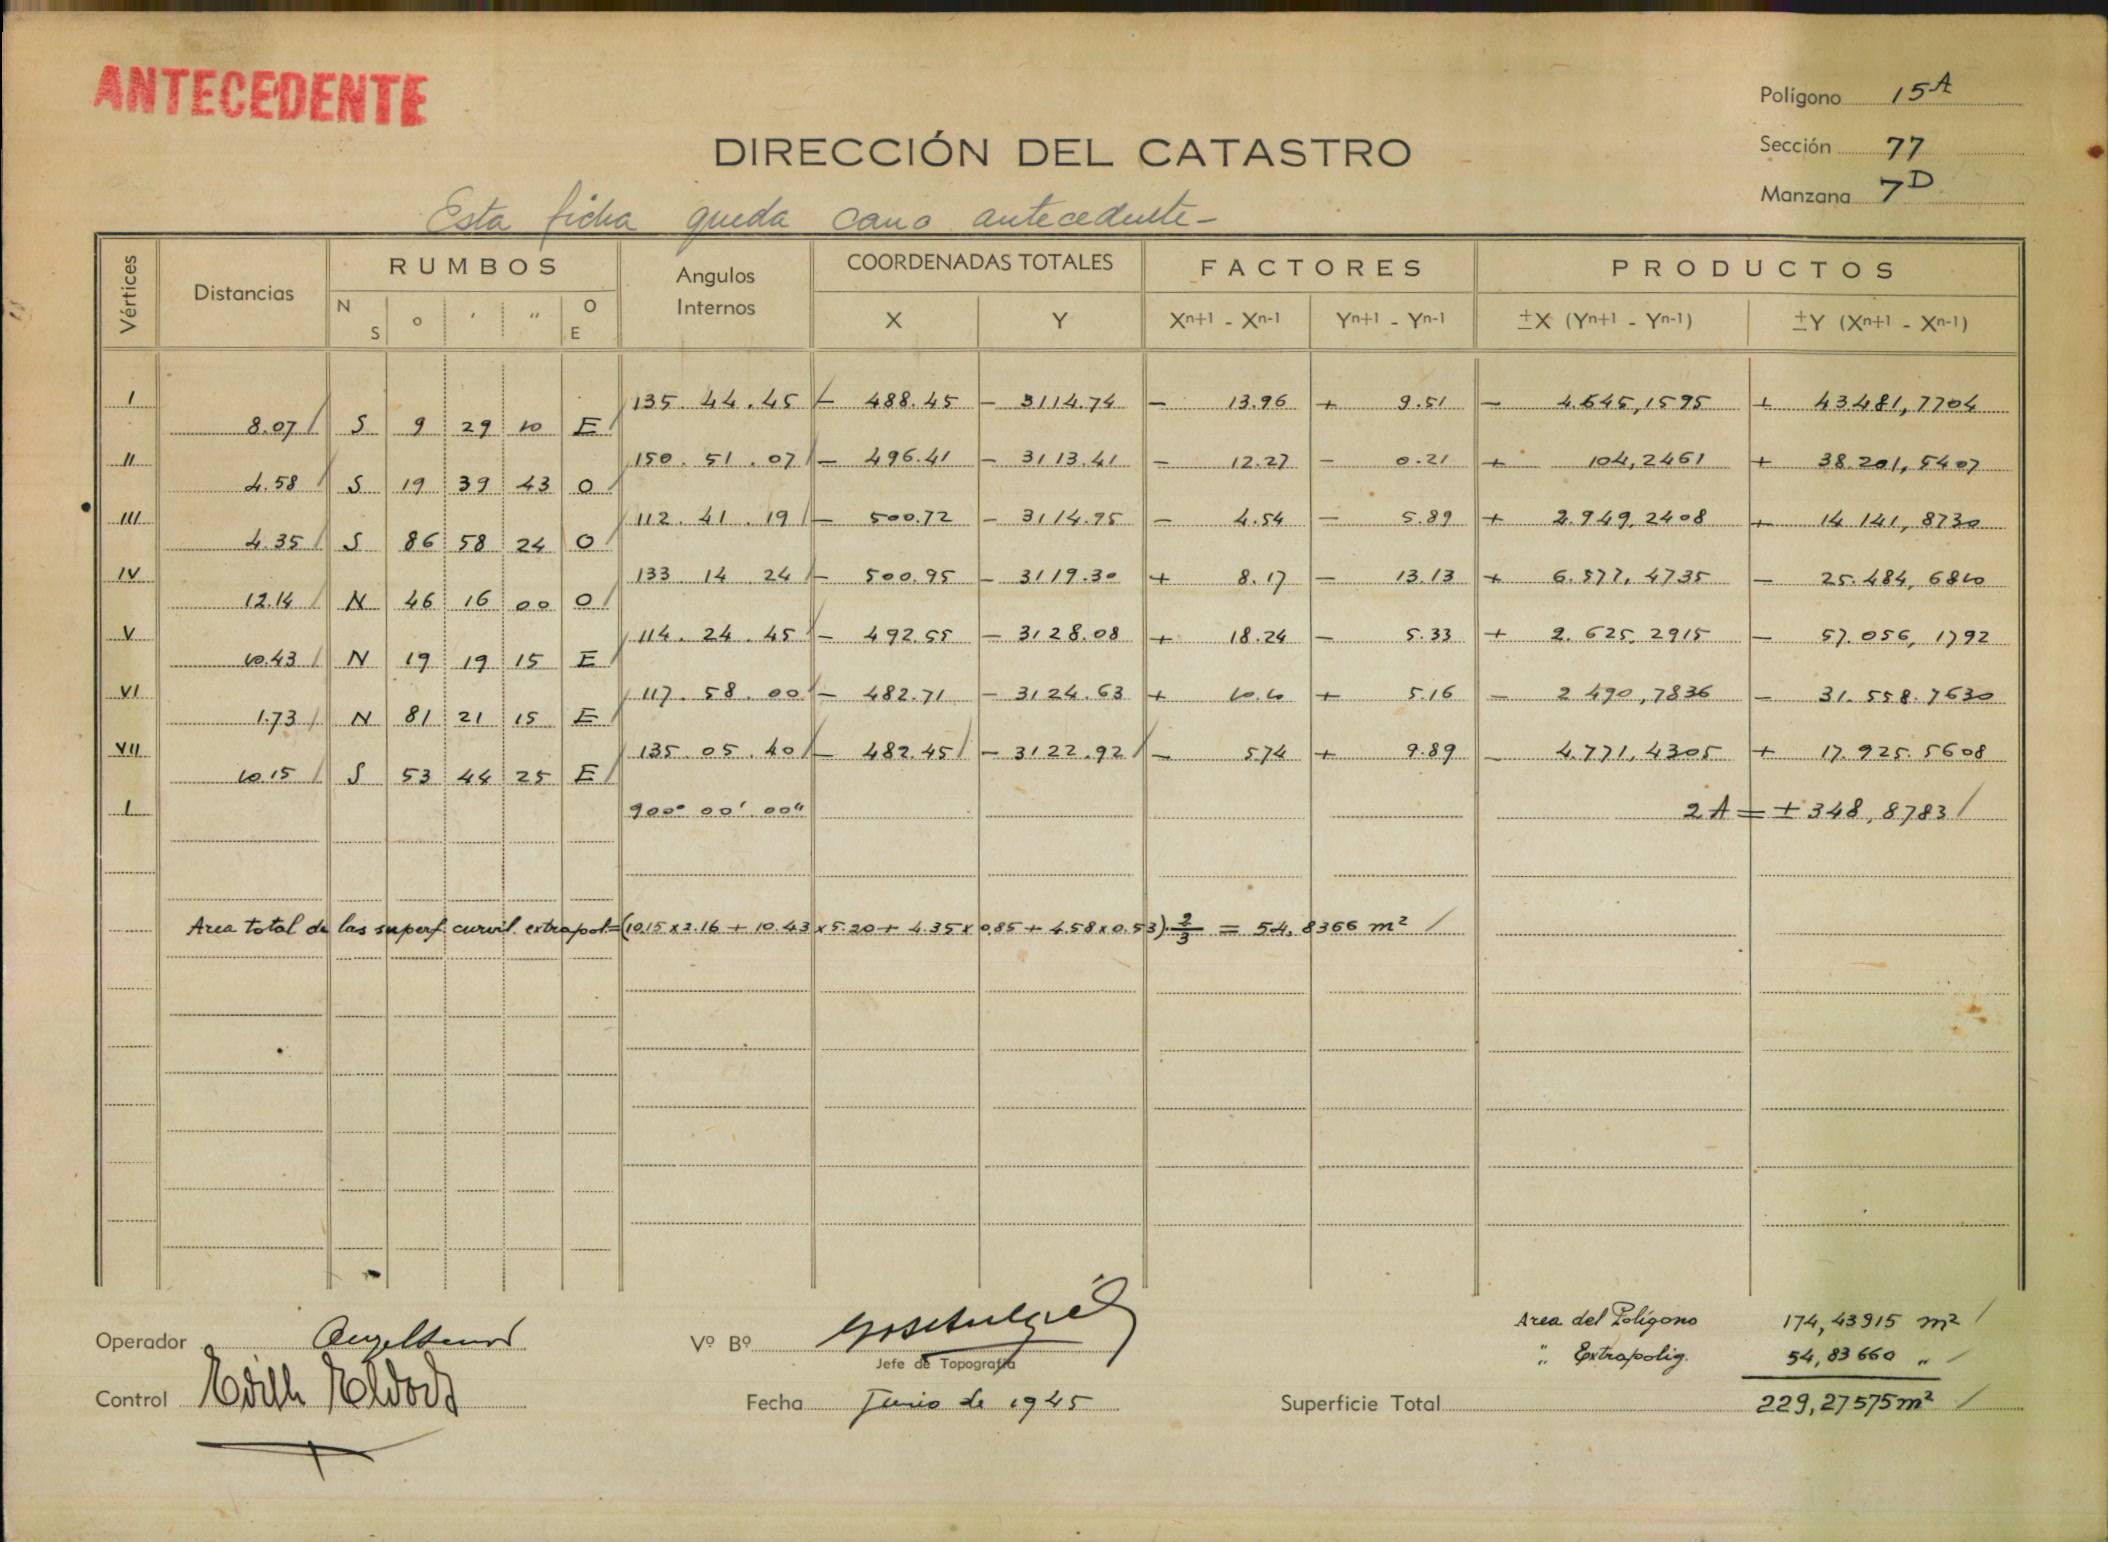 ANTECEDENTE
Polígono 15A
DIRECCIÓN DEL CATASTRO
Sección 77
Manzana 7D
Esta ficha queda como antecedente-
Vértices Distancias RUMBOS Angulos Internos COORDENADAS TOTALES FACTORES PRODUCTOS
N S ° ' " O E X Y Xn+1 - Xn-1 Yn+1 - Yn-1 ±X (Yn+1 - Yn-1) ±Y (Xn+1 - Xn-1)
I 135. 44. 45 - 488.45 - 3114.74 - 13.96 + 9.51 - 4.645,1595 + 43481,7704
8.07 S 9 29 10 E
II 150. 51. 07 - 496.41 - 3113.41 - 12.27 - 0.21 + 104,2461 + 38.201,5407
4.58 S 19 39 43 O
III 112. 41. 19 - 500.72 - 3114.95 - 4.54 - 5.89 + 2.949,2408 + 14 141,8730
4.35 S 86 58 24 O
IV 133 14 24 - 500.95 - 3119.30 + 8.17 - 13.13 + 6.577,4735 - 25.484,6810
12.14 N 46 16 00 O
V 114. 24. 45 - 492.55 - 3128.08 + 18.24 - 5.33 + 2.625,2915 - 57.056,1792
10.43 N 19 19 15 E
VI 117. 58. 00 - 482.71 - 3124.63 + 10.10 + 5.16 - 2 490,7836 - 31.558.7630
1.73 N 81 21 15 E
VII 135. 05. 40 - 482.45 - 3122.92 - 5.74 + 9.89 - 4.771,4305 + 17.925.5608
10.15 S 53 44 25 E
I 900° 00' 00" 2A = ± 348,8783
Area total de las superf. curvil. extrapol.= (10.15 x 2.16 + 10.43 x 5.20 + 4.35 x 0.85 + 4.58 x 0.53) . 2/3 = 54,8366 m²
Area del Polígono 174,43915 m²
Operador Vº Bº
Jefe de Topografía
" Extrapolig. 54,83660 "
Control Edith
Fecha Junio de 1945
Superficie Total 229,27575 m²